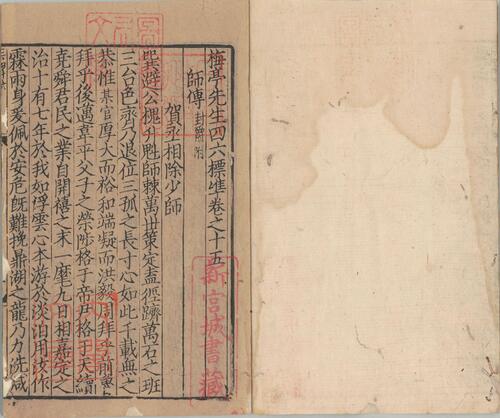 梅亭先生四六標準卷之十五
師傅 封爵附
賀丞相除少師
巽避公槐升魁師棘萬世策定盍徑躋萬石之班
三台色齊乃退位三孤之長寸心如此千載無之
恭惟某官厚大而裕和端凝而洪毅周拜乎前魯
拜乎後邁嘉平父子之榮陟格于帝尹格于天續
堯舜君民之業自開禧之末一麾九日相嘉定之
治十有七年於我如浮雲心本游於淡泊用汝作
霖雨身爰佩於安危旣難挽鼎湖之龍乃力洗咸
新宮城書藏